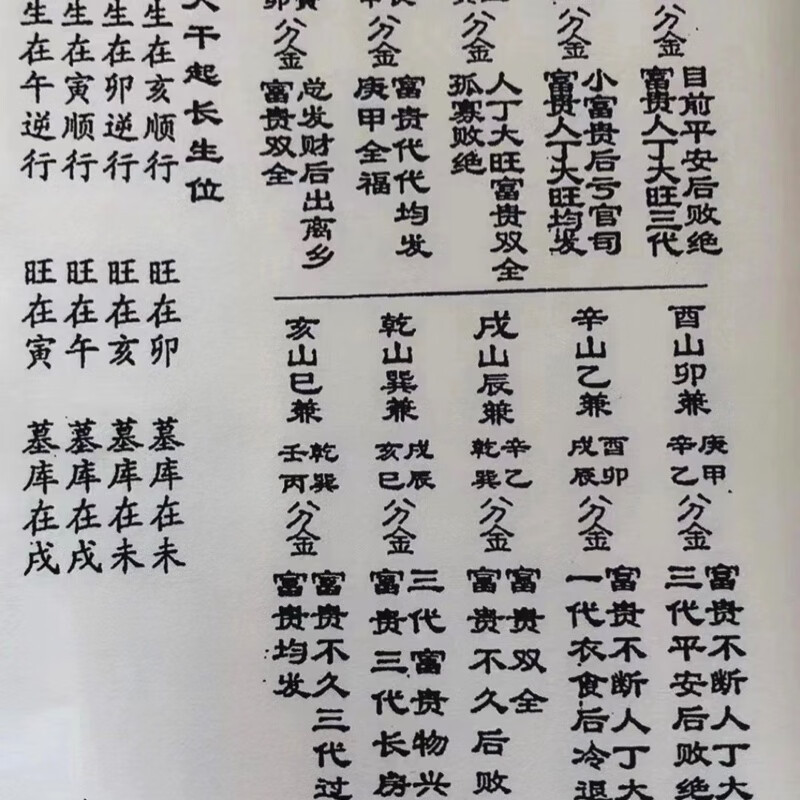 目前平安后败绝
富贵人丁大旺三代
小富贵后亏官司
富贵人丁大旺均发
人丁大旺富贵双全
孤寡败绝
富贵代代均发
庚甲全福
总发财后出离乡
富贵双全
分金
分金
分金
分金
分金
酉山卯兼
庚甲
辛乙
分金
富贵不断人丁大
三代平安后败绝
辛山乙兼
酉卯
戌辰
分金
富贵不断人丁大
一代衣食后冷退
戌山辰兼
辛乙
乾巽
分金
富贵双全
富贵不久后败
乾山巽兼
戌辰
亥巳
分金
三代富贵物兴
富贵三代长房
亥山巳兼
乾巽
壬丙
分金
富贵不久三代过
富贵均发
干起长生位
生在亥顺行 旺在卯 墓库在未
生在卯逆行 旺在亥 墓库在未
生在寅顺行 旺在午 墓库在戌
生在午逆行 旺在寅 墓库在戌